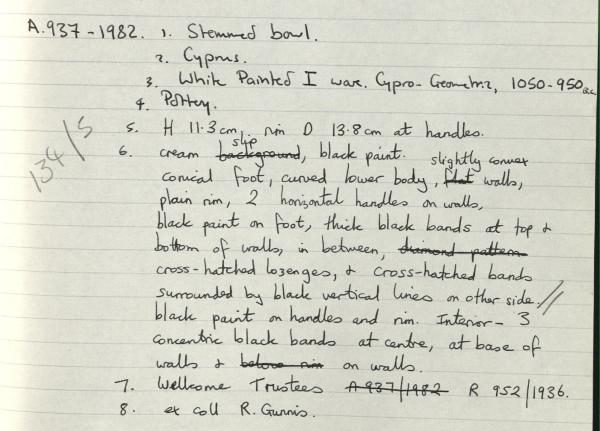 A.937-1982. 1. Stemmed bowl.
2. Cyprus.
3. White Painted I ware. Cypro-Geometric, 1050-950 B.C.
4. Pottery.
5. H 11.3cm, rim D 13.8cm at handles.
134/5
slip
6. cream background, black paint. slightly convex
conical foot, curved lower body, flat walls,
plain rim, 2 horizontal handles on walls,
black paint on foot, thick black bands at top &
bottom of walls, in between, diamond pattern
cross-hatched lozenges, & cross-hatched bands
surrounded by black vertical lines on other side.//
black paint on handles and rim. Interior - 3
concentric black bands at centre, at base of
walls & below rim on walls.
7. Wellcome Trustees A937/1982 R 952/1936.
8. ex coll R. Gunnis.